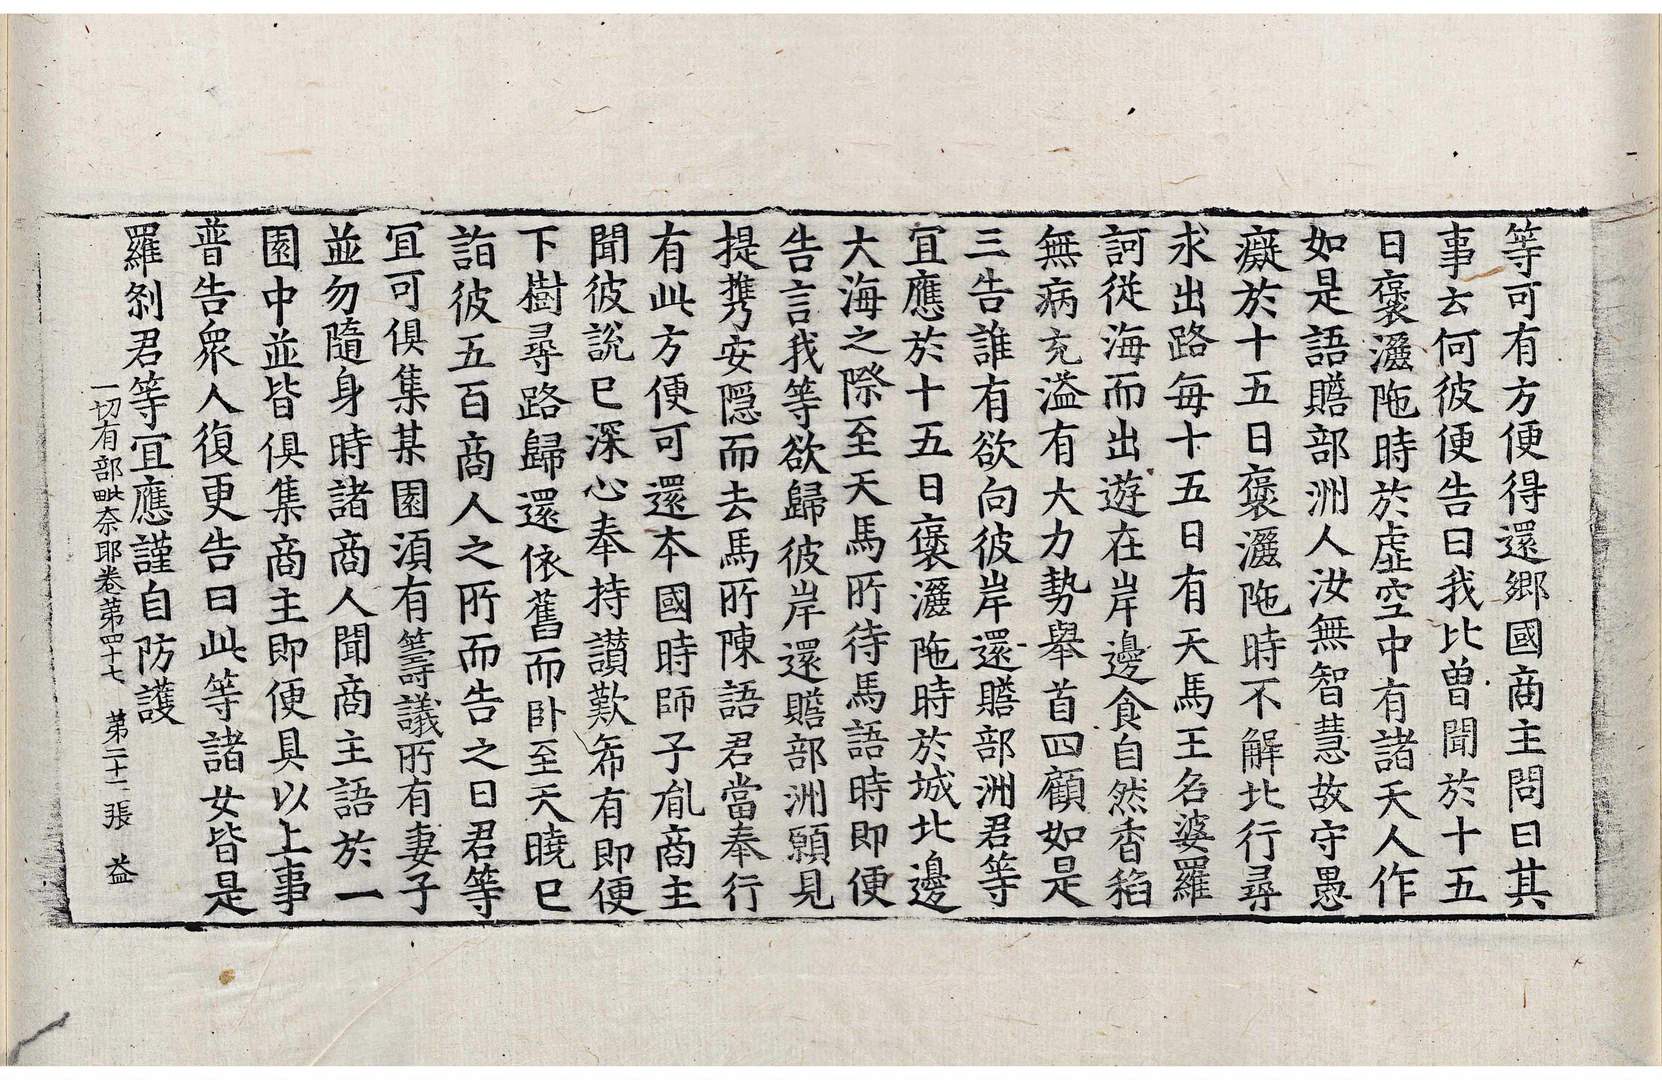 等可有方便得還鄉國商主問曰其
事去何彼便告曰我比曾聞於十五
日褒灑陁時於虛空中有諸天人作
如是語贍部洲人汝無智慧故守愚
癡於十五日褒灑陁時不解北行尋
求出路每十五日有天馬王名婆羅
訶從海而出遊在岸邊食自然香稻
無病充溢有大力勢舉首四顧如是
三告誰有欲向彼岸還贍部洲君等
冝應於十五日褒灑陁時於城北邊
大海之際至天馬所待馬語時即便
告言我等欲歸彼岸還贍部洲願見
提攜安隱而去馬所陳語君當奉行
有此方便可還本國時師子胤商主
聞彼說已深心奉持讚歎希有即便
下樹尋路歸還依舊而卧至天曉已
詣彼五百商人之所而告之曰君等
冝可俱集某園湏有籌議所有妻子
並勿隨身時諸商人聞商主語於一
園中並皆俱集商主即便具以上事
普告衆人復更告曰此等諸女皆是
羅刹君等冝應謹自防護
一切有部毗奈耶卷第四十七 第二十二張 益